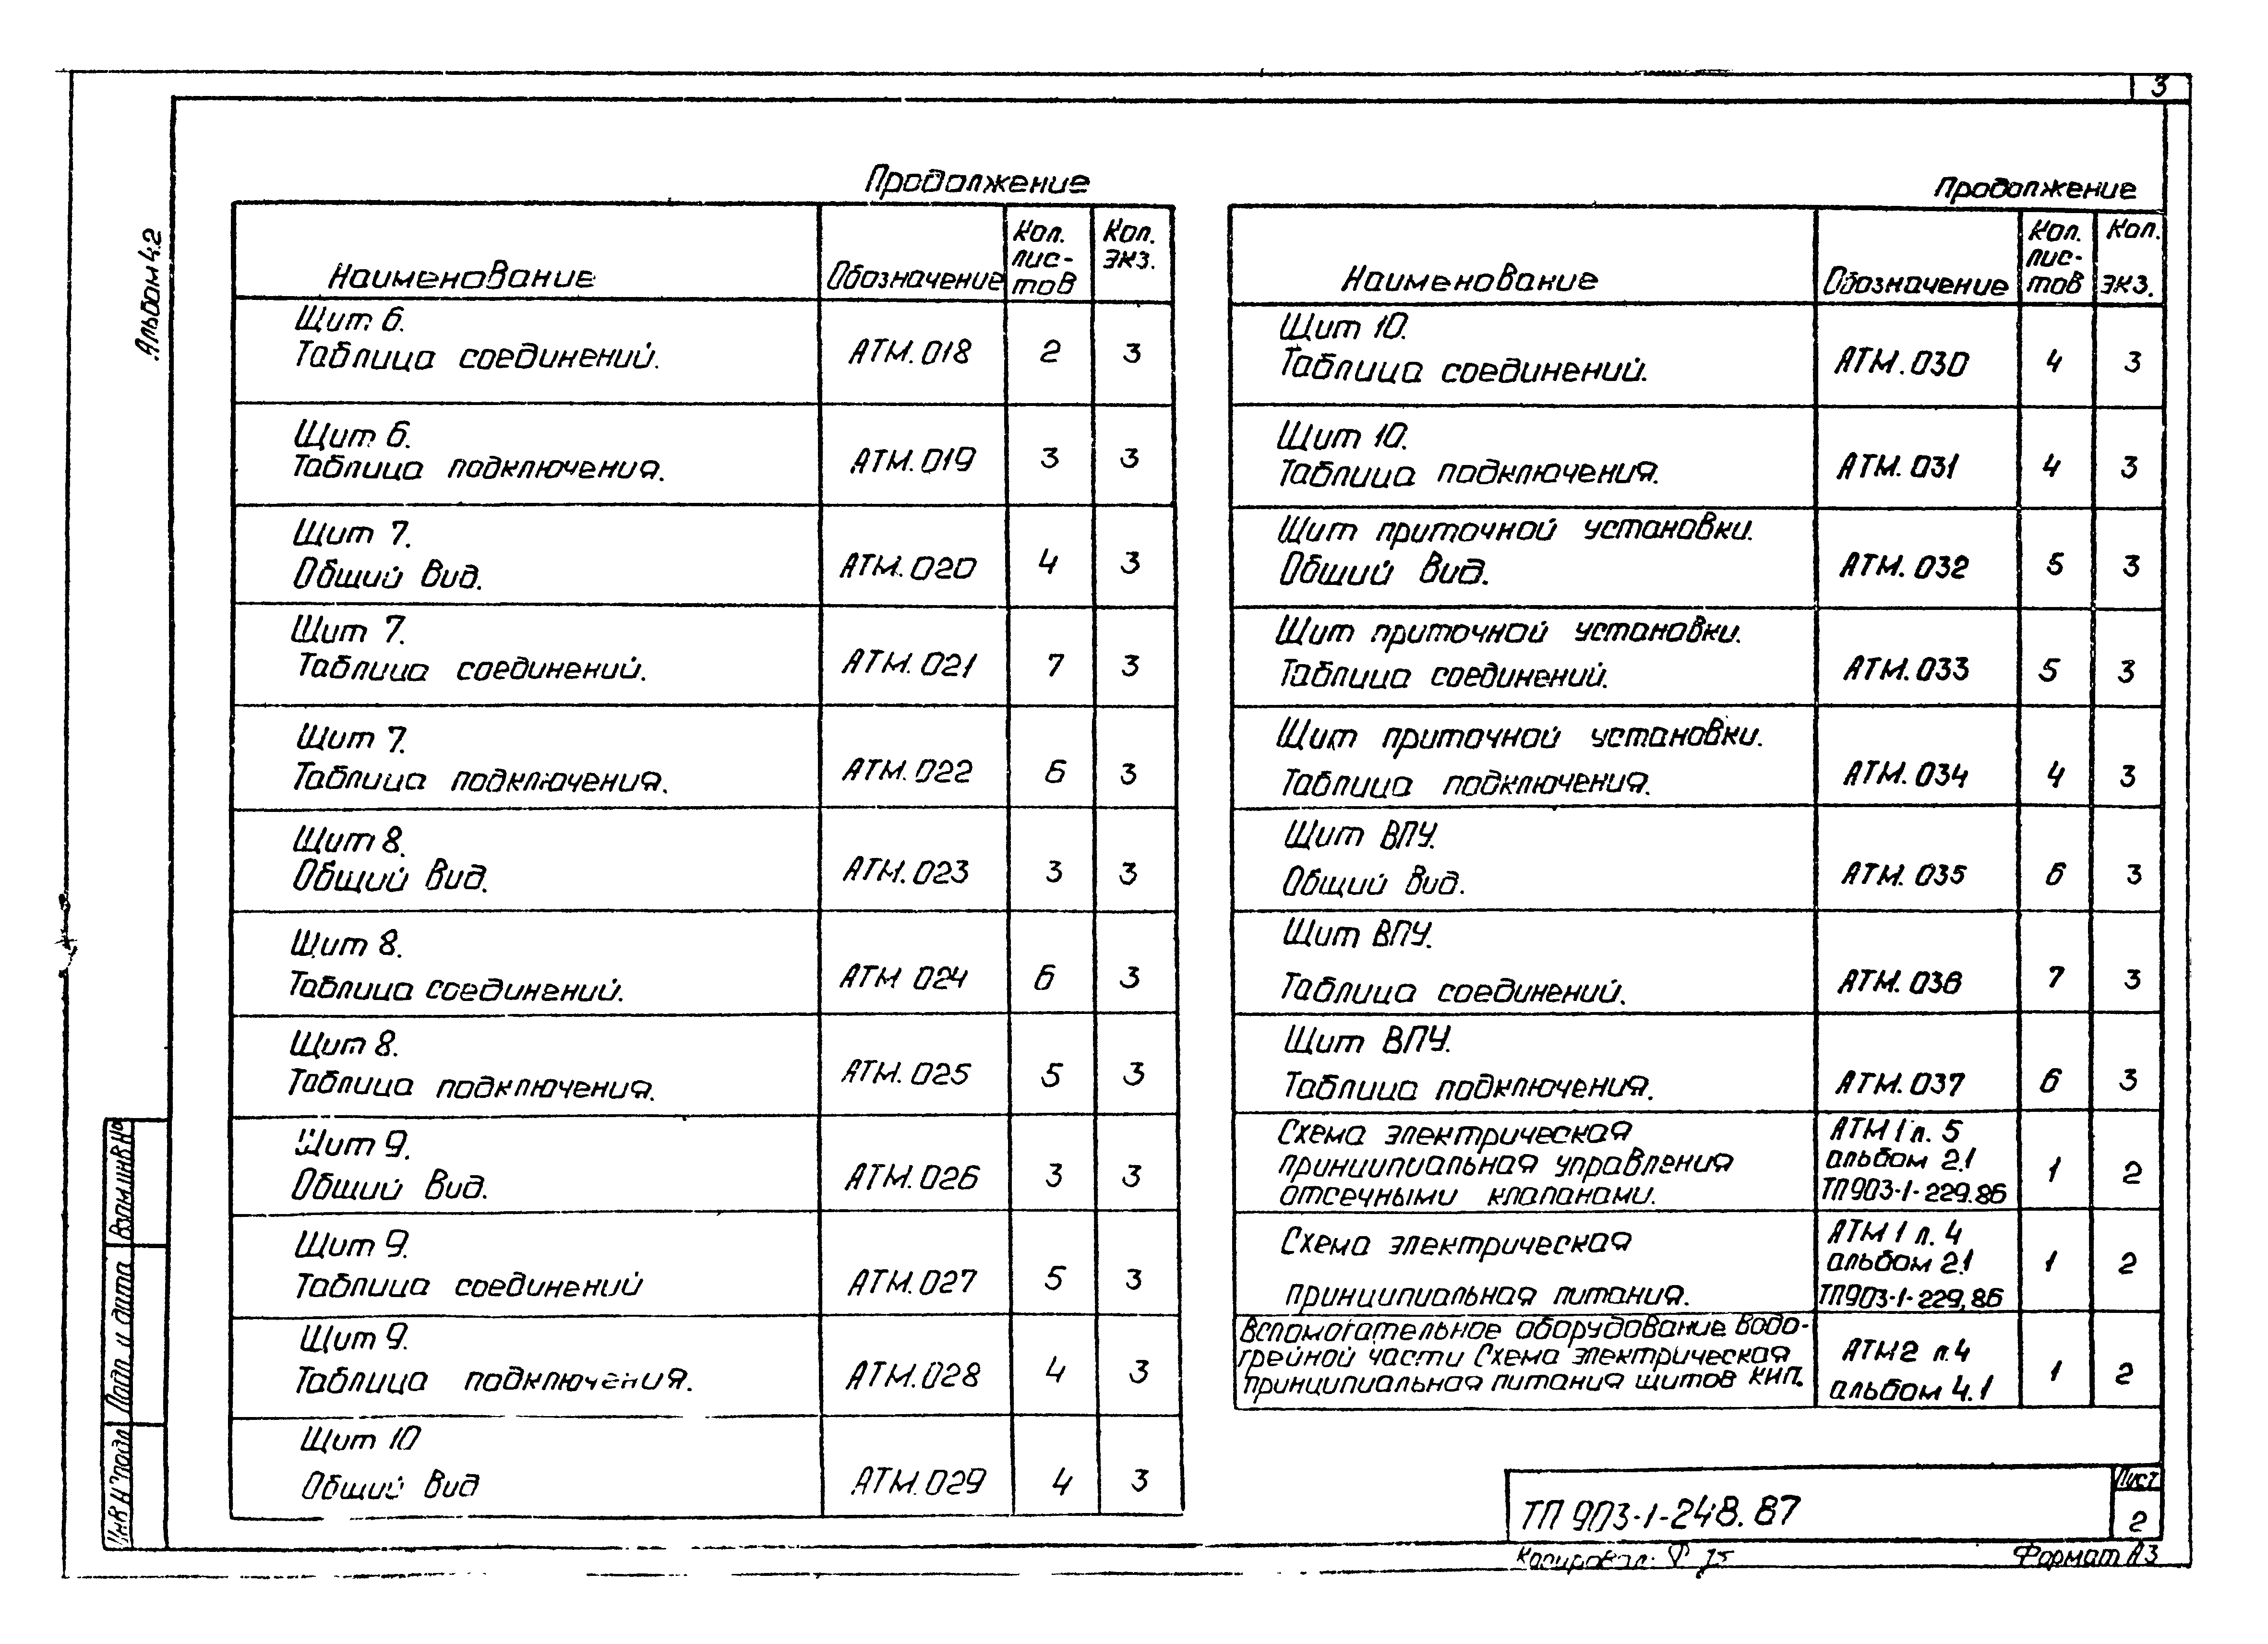 3
Альбом 4.2
Продолжение
Наименование
Обозначение
Кол.
лис-
тов
Кол.
экз.
Щит 6.
Таблица соединений.
АТМ.018
2
3
Щит 6.
Таблица подключения.
АТМ.019
3
3
Щит 7.
Общий вид.
АТМ.020
4
3
Щит 7.
Таблица соединений.
АТМ.021
7
3
Щит 7.
Таблица подключения.
АТМ.022
6
3
Щит 8.
Общий вид.
АТМ.023
3
3
Щит 8.
Таблица соединений.
АТМ 024
6
3
Щит 8.
Таблица подключения.
АТМ.025
5
3
Щит 9.
Общий вид.
АТМ.026
3
3
Щит 9.
Таблица соединений
АТМ.027
5
3
Щит 9.
Таблица подключения.
АТМ.028
4
3
Щит 10
Общий вид
АТМ.029
4
3
Продолжение
Наименование
Обозначение
Кол.
лис-
тов
Кол.
экз.
Щит 10.
Таблица соединений.
АТМ.030
4
3
Щит 10.
Таблица подключения.
АТМ.031
4
3
Щит приточной установки.
Общий вид.
АТМ.032
5
3
Щит приточной установки.
Таблица соединений.
АТМ.033
5
3
Щит приточной установки.
Таблица подключения.
АТМ.034
4
3
Щит ВПУ.
Общий вид.
АТМ.035
6
3
Щит ВПУ.
Таблица соединений.
АТМ.036
7
3
Щит ВПУ.
Таблица подключения.
АТМ.037
6
3
Схема электрическая
принципиальная управления
отсечными клапанами.
АТМ1 л. 5
альбом 2.1
ТП903-1-229.86
1
2
Схема электрическая
принципиальная питания.
АТМ1 л. 4
альбом 2.1
ТП903-1-229.86
1
2
Вспомогательное оборудование водо-
грейной части Схема электрическая
принципиальная питания щитов КИП.
АТМ2 л.4
альбом 4.1
1
2
Взам.инв.№
Подп. и дата
Инв.№ подл
ТП 903-1-248.87
Лист
2
Копировал:
Формат А3